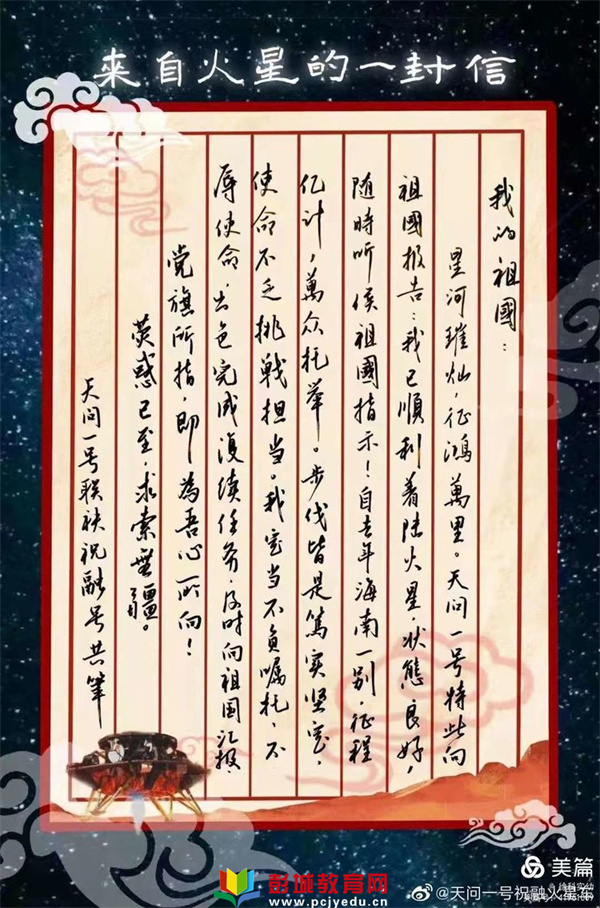 来自火星的一封信
我的祖國：
星河璀灿，征鴻萬里。天问一号特此向
祖國报告：我已順利着陆火星，状態良好，
随時听候祖國指示！自去年海南一别，征程
亿计，萬众托举。步伐皆是篤实坚定，
使命不乏挑戦担当。我定当不負嘱托，不
辱使命，出色完成後续任务，及时向祖国汇报
党旗所指，即為吾心所向！
荧惑已至，求索無疆。
天问一号联袂祝融号共筆
美篇
彭城教育网
www.pcjyedu.cn
@天问一号祝融